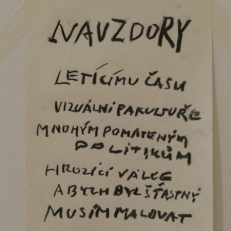 NAVZDORY
LETÍCÍMU ČASU
VIZUÁLNÍ PAKULTUŘE
MNOHÝM POMATENÝM
POLITIKŮM
HROZÍCÍ VÁLCE
ABYCH BYL ŠŤASTNÝ
MUSÍM MALOVAT